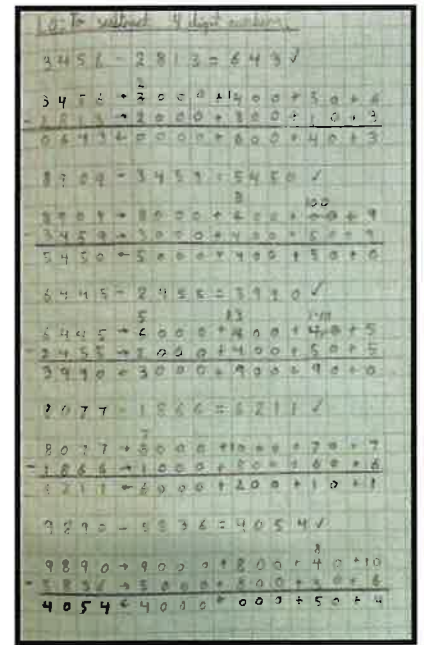 LO: To subtract 4 digit numbers
3456 - 2813 = 643 ✓
2
3456 → 3000 + 1400 + 50 + 6
- 2813 → 2000 + 800 + 10 + 3
0643 ← 0000 + 600 + 40 + 3
8909 - 3459 = 5450 ✓
8 100
8909 → 8000 + 00 + 9
- 3459 → 3000 + 400 + 50 + 9
5450 ← 5000 + 400 + 50 + 0
6445 - 2455 = 3990 ✓
5 13 140
6445 → 6000 + 400 + 40 + 5
- 2455 → 2000 + 400 + 50 + 5
3990 ← 3000 + 900 + 90 + 0
8077 - 1866 = 6211 ✓
7
8077 → 8000 + 1000 + 70 + 7
- 1866 → 1000 + 800 + 60 + 6
6211 ← 6000 + 200 + 10 + 1
9890 - 5836 = 4054 ✓
8
9890 → 9000 + 800 + 40 + 10
- 5836 → 5000 + 800 + 30 + 6
4054 ← 4000 + 000 + 50 + 4